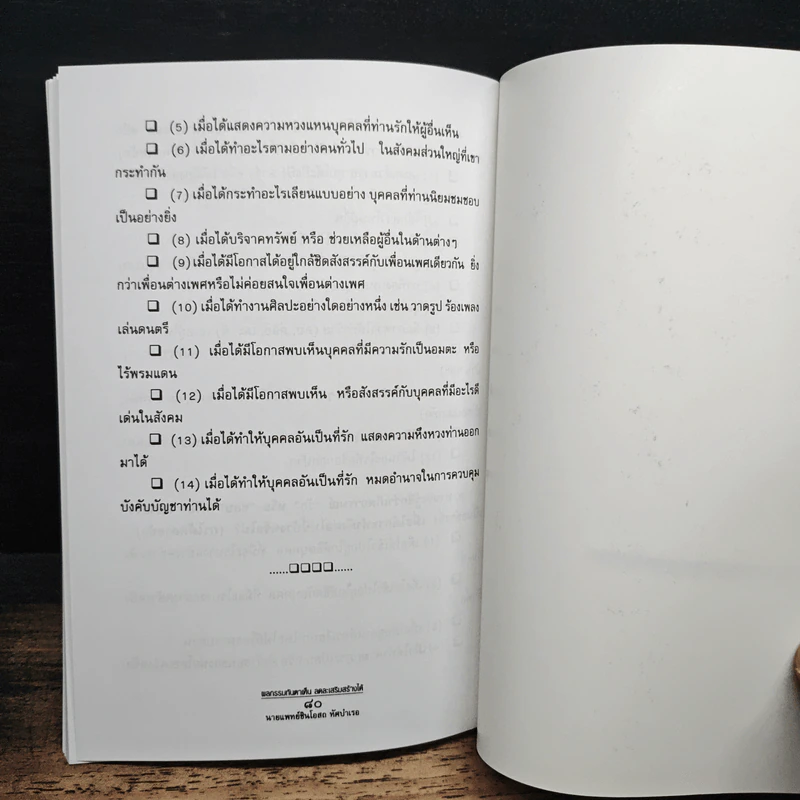 ❑ (5) เมื่อได้แสดงความหวงแหนบุคคลที่ท่านรักให้ผู้อื่นเห็น
❑ (6) เมื่อได้ทำอะไรตามอย่างคนทั่วไป ในสังคมส่วนใหญ่ที่เขา
กระทำกัน
❑ (7) เมื่อได้กระทำอะไรเลียนแบบอย่าง บุคคลที่ท่านนิยมชมชอบ
เป็นอย่างยิ่ง
❑ (8) เมื่อได้บริจาคทรัพย์ หรือ ช่วยเหลือผู้อื่นในด้านต่างๆ
❑ (9) เมื่อได้มีโอกาสได้อยู่ใกล้ชิดสังสรรค์กับเพื่อนเพศเดียวกัน ยิ่ง
กว่าเพื่อนต่างเพศหรือไม่ค่อยสนใจเพื่อนต่างเพศ
❑ (10) เมื่อได้ทำงานศิลปะอย่างใดอย่างหนึ่ง เช่น วาดรูป ร้องเพลง
เล่นดนตรี
❑ (11) เมื่อได้มีโอกาสพบเห็นบุคคลที่มีความรักเป็นอมตะ หรือ
ไร้พรมแดน
❑ (12) เมื่อได้มีโอกาสพบเห็น หรือสังสรรค์กับบุคคลที่มีอะไรดี
เด่นในสังคม
❑ (13) เมื่อได้ทำให้บุคคลอันเป็นที่รัก แสดงความหึงหวงท่านออก
มาได้
❑ (14) เมื่อได้ทำให้บุคคลอันเป็นที่รัก หมดอำนาจในการควบคุม
บังคับบัญชาท่านได้
......❑❑❑❑......
ผลกรรมทันตาเห็น ลดละเสริมสร้างได้
๘๐
นายแพทย์ชินโอสถ หัศบำเรอ